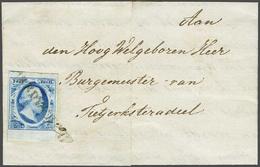 Aan
den Hoog Welgeboren Heer
Burgemeester van
Tietjerksteradeel